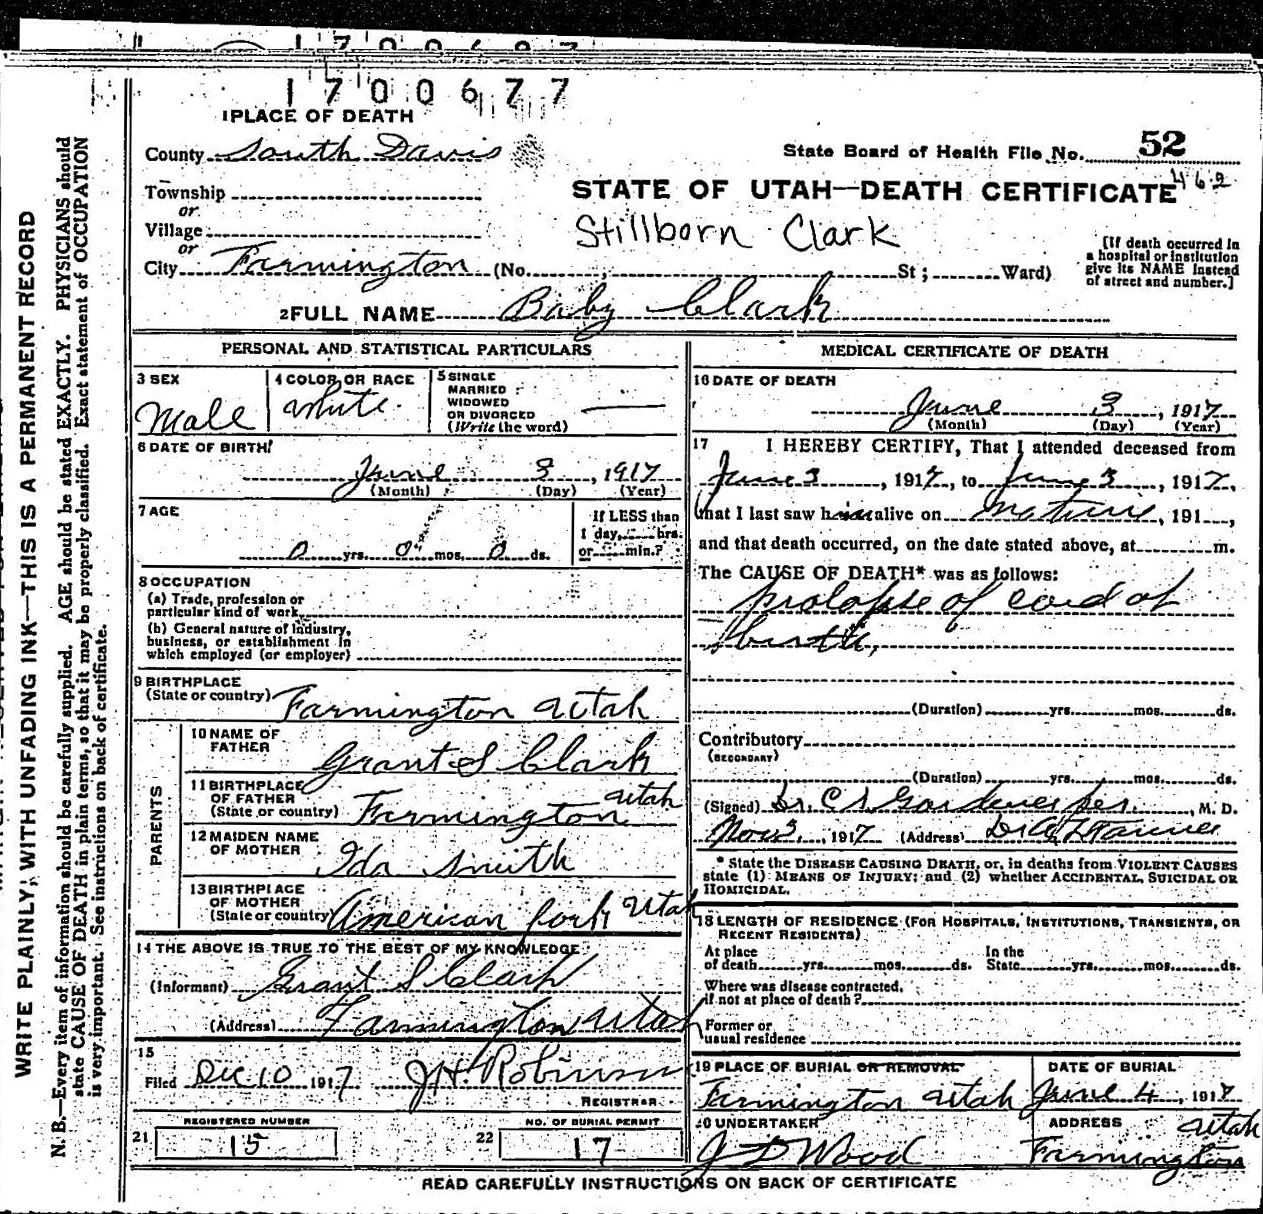 1700677
1 PLACE OF DEATH
County South Davis
State Board of Health File No. 52
462
Township
or
Village
or
City Farmington (No. , St; Ward)
STATE OF UTAH—DEATH CERTIFICATE
Stillborn Clark
[If death occurred in
a hospital or institution
give its NAME instead
of street and number.]
2 FULL NAME Baby Clark
PERSONAL AND STATISTICAL PARTICULARS
3 SEX
Male
4 COLOR OR RACE
White
5 SINGLE
MARRIED
WIDOWED
OR DIVORCED
(Write the word)
6 DATE OF BIRTH
June 3, 1917
(Month) (Day) (Year)
7 AGE
0 yrs. 0 mos. 0 ds.
If LESS than
1 day, hrs.
or min.?
8 OCCUPATION
(a) Trade, profession or
particular kind of work
(b) General nature of industry,
business, or establishment in
which employed (or employer)
9 BIRTHPLACE
(State or country) Farmington Utah
PARENTS
10 NAME OF
FATHER
Grant S Clark
11 BIRTHPLACE
OF FATHER
(State or country) Farmington Utah
12 MAIDEN NAME
OF MOTHER
Ida Smith
13 BIRTHPLACE
OF MOTHER
(State or country) American Fork Utah
14 THE ABOVE IS TRUE TO THE BEST OF MY KNOWLEDGE
(Informant) Grant S Clark
(Address) Farmington Utah
15
Filed Dec 10 1917 J H Robinson
REGISTRAR
21 REGISTERED NUMBER
15
22 NO. OF BURIAL PERMIT
17
MEDICAL CERTIFICATE OF DEATH
16 DATE OF DEATH
June 3, 1917
(Month) (Day) (Year)
17 I HEREBY CERTIFY, That I attended deceased from
June 3, 1917, to June 3, 1917,
that I last saw h alive on , 191 ,
and that death occurred, on the date stated above, at m.
The CAUSE OF DEATH* was as follows:
prolapse of cord at
birth,
(Duration) yrs. mos. ds.
Contributory
(SECONDARY)
(Duration) yrs. mos. ds.
(Signed) Dr. C Gardner per. , M. D.
Nov 3, 1917 (Address)
* State the DISEASE CAUSING DEATH, or, in deaths from VIOLENT CAUSES
state (1) MEANS OF INJURY; and (2) whether ACCIDENTAL, SUICIDAL OR
HOMICIDAL.
18 LENGTH OF RESIDENCE (FOR HOSPITALS, INSTITUTIONS, TRANSIENTS, OR
RECENT RESIDENTS)
At place
of death yrs. mos. ds.
In the
State yrs. mos. ds.
Where was disease contracted,
if not at place of death?
Former or
usual residence
19 PLACE OF BURIAL OR REMOVAL
Farmington Utah
DATE OF BURIAL
June 4, 1917
20 UNDERTAKER
J D Wood
ADDRESS
Utah
Farmington
READ CAREFULLY INSTRUCTIONS ON BACK OF CERTIFICATE
WRITE PLAINLY, WITH UNFADING INK—THIS IS A PERMANENT RECORD
N. B.—Every item of information should be carefully supplied. AGE should be stated EXACTLY. PHYSICIANS should
state CAUSE OF DEATH in plain terms, so that it may be properly classified. Exact statement of OCCUPATION
is very important. See instructions on back of certificate.